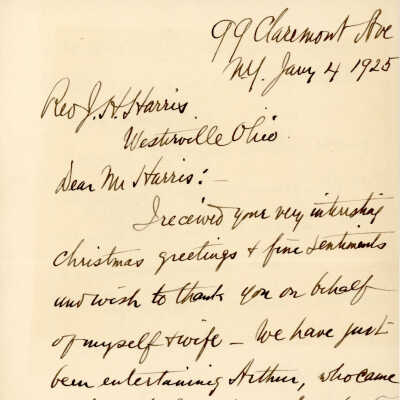 99 Claremont Ave
N.Y. Jany 4 1925
Rev J. H. Harris
Westerville Ohio
Dear Mr Harris:-
I received your very interesting
Christmas greetings & fine sentiments
and wish to thank you on behalf
of myself & wife - We have just
been entertaining Arthur, who came